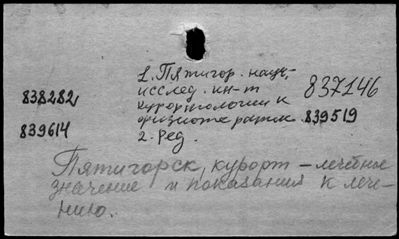 1. Пятигор. науч.
исслед. ин-т 837146
838282 курортологии и
физиотерапии. 839519
839614 2. Ред.
Пятигорск, курорт – лечебное
значение и показания к лече-
нию.